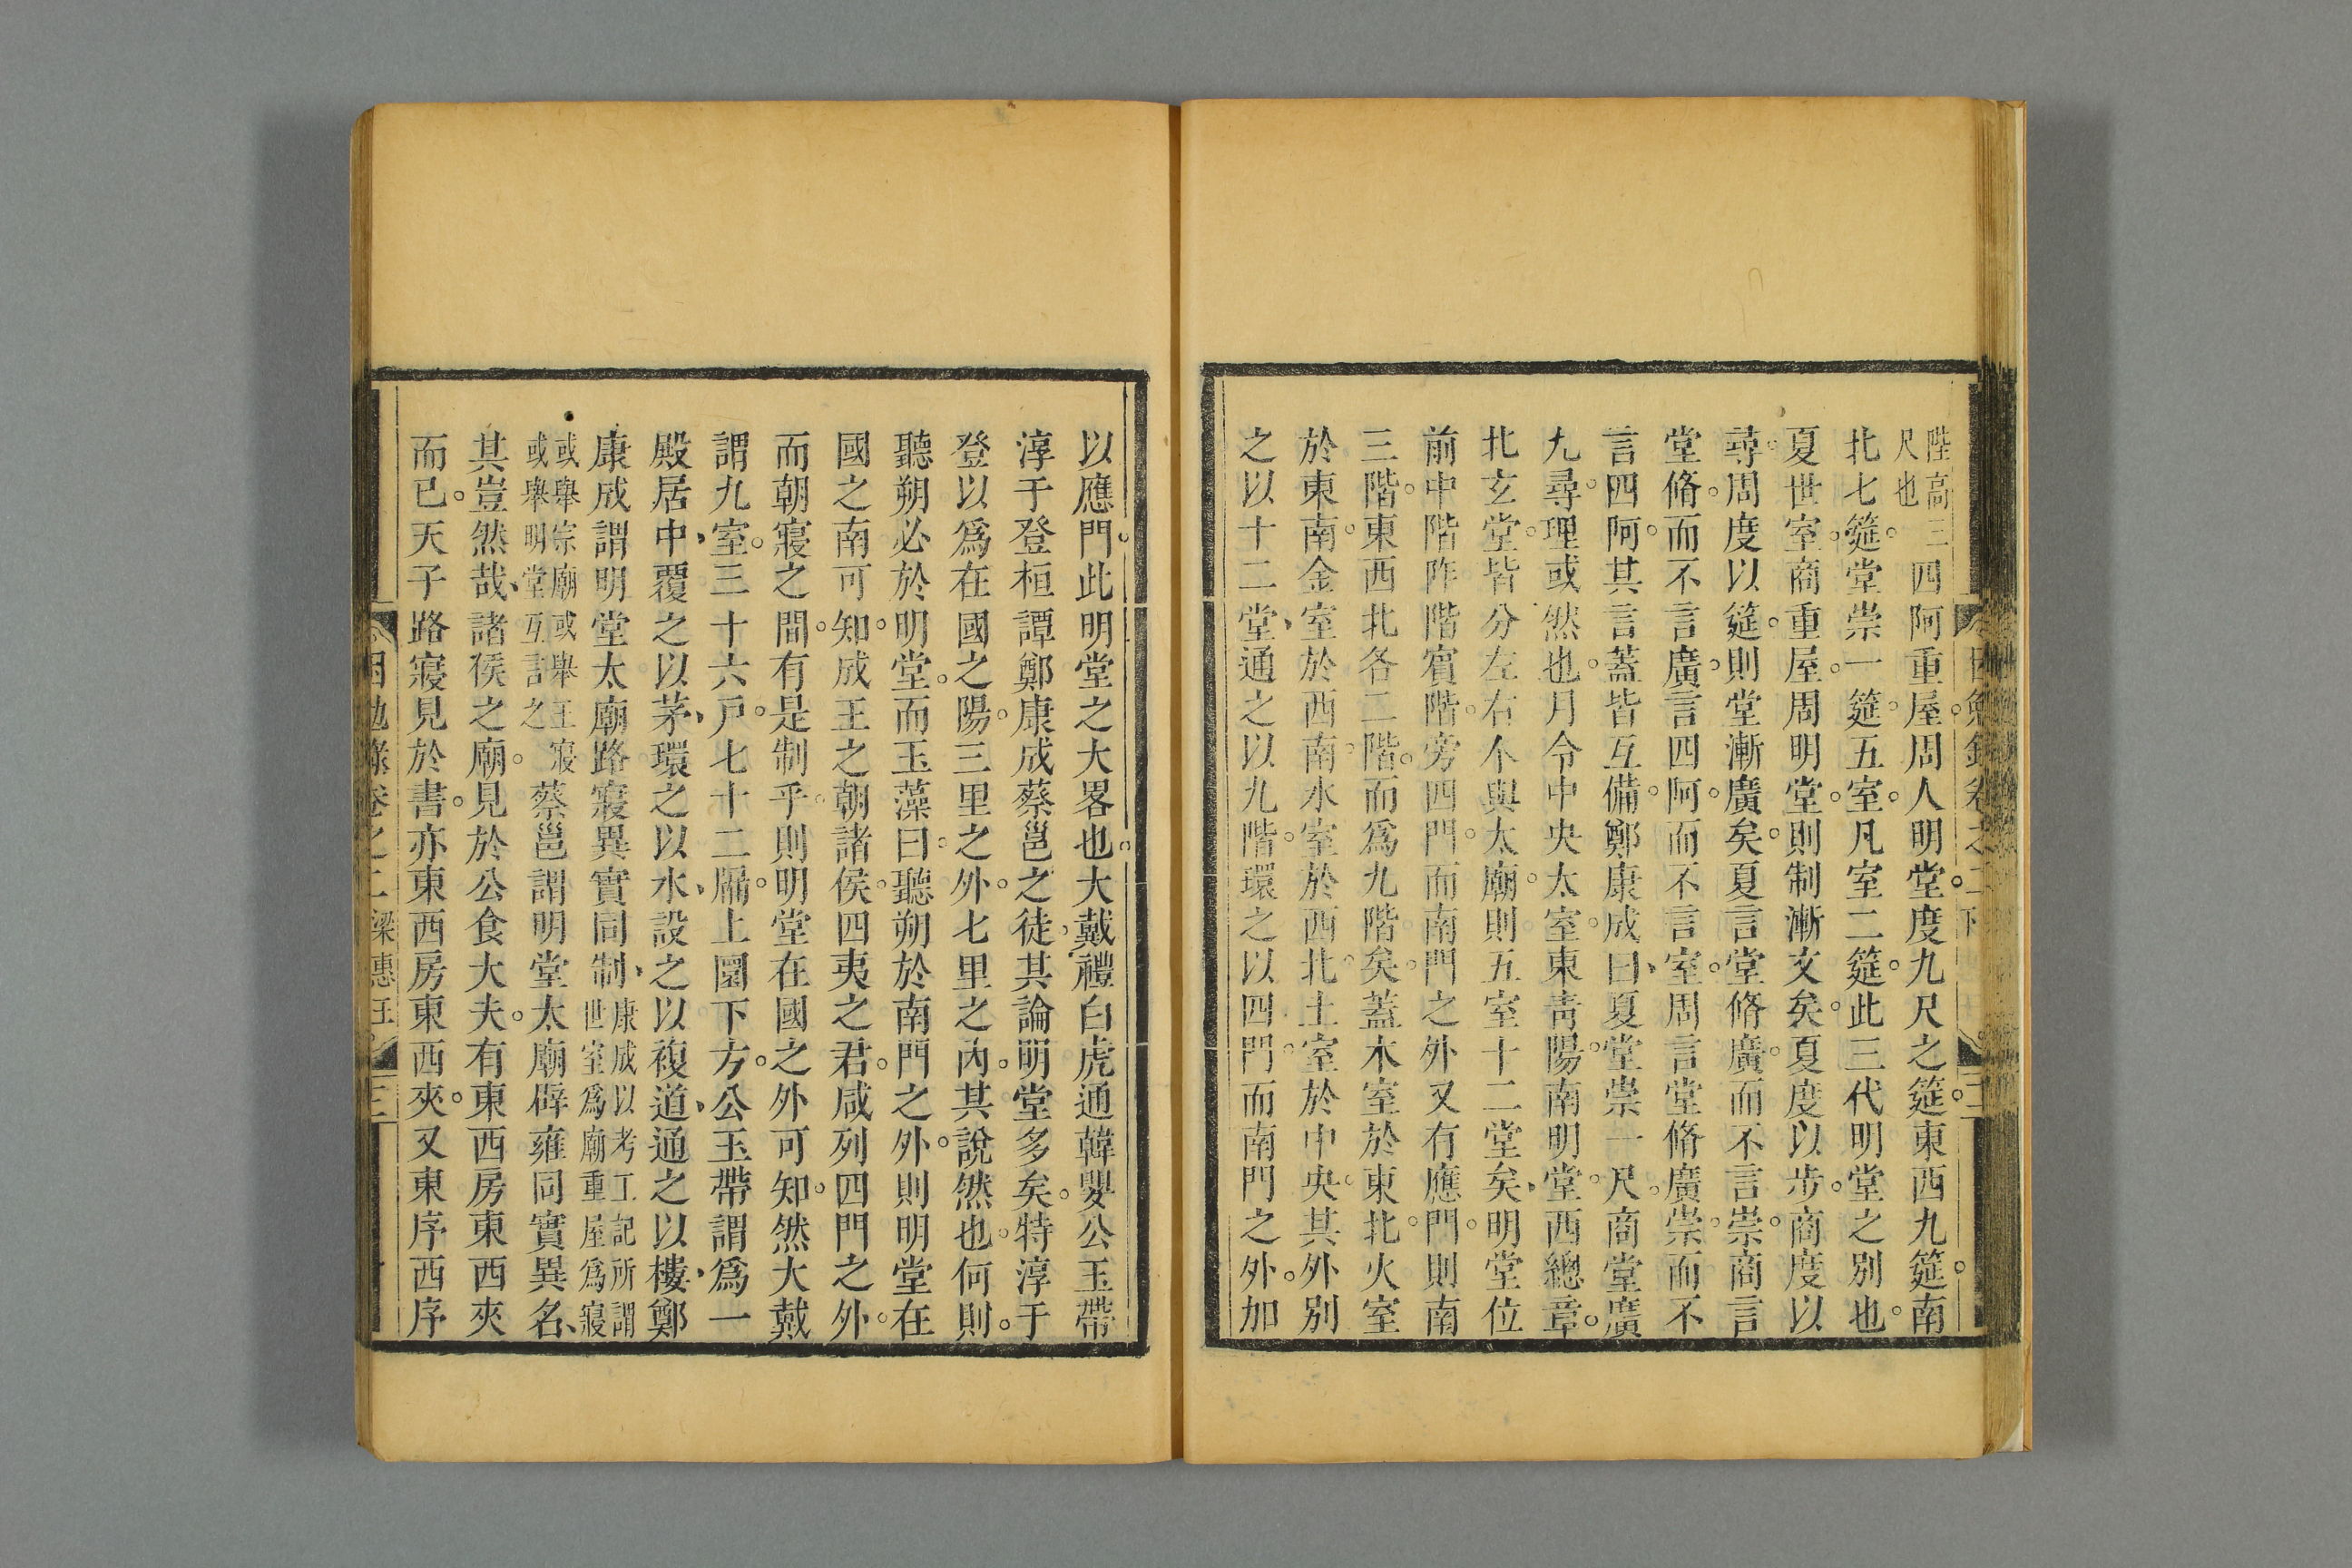 陛高三尺也四阿重屋。周人明堂。度九尺之筵。東西九筵。南
北七筵。堂崇一筵。五室。凡室二筵。此三代明堂之別也。
夏世室。商重屋。周明堂。則制漸文矣。夏度以步。商度以
尋。周度以筵。則堂漸廣矣。夏言堂脩廣。而不言崇。商言
堂脩。而不言廣。言四阿。而不言室。周言堂脩廣崇。而不
言四阿。其言蓋皆互備。鄭康成曰、夏堂崇一尺。商堂廣
九尋。理或然也。月令中央太室。東靑陽。南明堂。西總章。
北玄堂。皆分左右个。與太廟。則五室十二堂矣、明堂位
前中階阼階賓階。旁四門。而南門之外。又有應門。則南
三階。東西北各二階。而爲九階矣。蓋木室於東北。火室
於東南。金室於西南。水室於西北。土室於中央。其外別
之以十二堂、通之以九階。環之以四門。而南門之外。加
以應門。此明堂之大畧也。大戴禮白虎通韓嬰公玉帶
淳于登桓譚鄭康成蔡邕之徒、其論明堂多矣。特淳于
登以爲在國之陽。三里之外。七里之內。其說然也。何則。
聽朔必於明堂。而玉藻曰。聽朔於南門之外。則明堂在
國之南可知。成王之朝諸侯。四夷之君。咸列四門之外。
而朝寢之間。有是制乎。則明堂在國之外可知。然大戴
謂九室。三十六戶。七十二牖。上圜下方。公玉帶謂爲一
殿居中、覆之以茅、環之以水、設之以複道、通之以樓、鄭
康成謂明堂太廟路寢異實同制、康成以考工記所謂世室爲廟重屋爲寢
或舉宗廟或舉王寢或舉明堂互言之蔡邕謂明堂太廟辟雍同實異名、
其豈然哉、諸侯之廟。見於公食大夫。有東西房東西夾
而已。天子路寢見於書。亦東西房東西夾。又東序西序
困勉錄卷之二 梁惠王 三